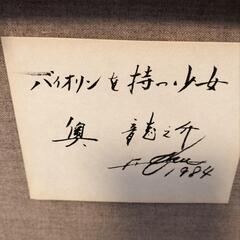 バイオリンを持つ少女
奥 龍之介
1984